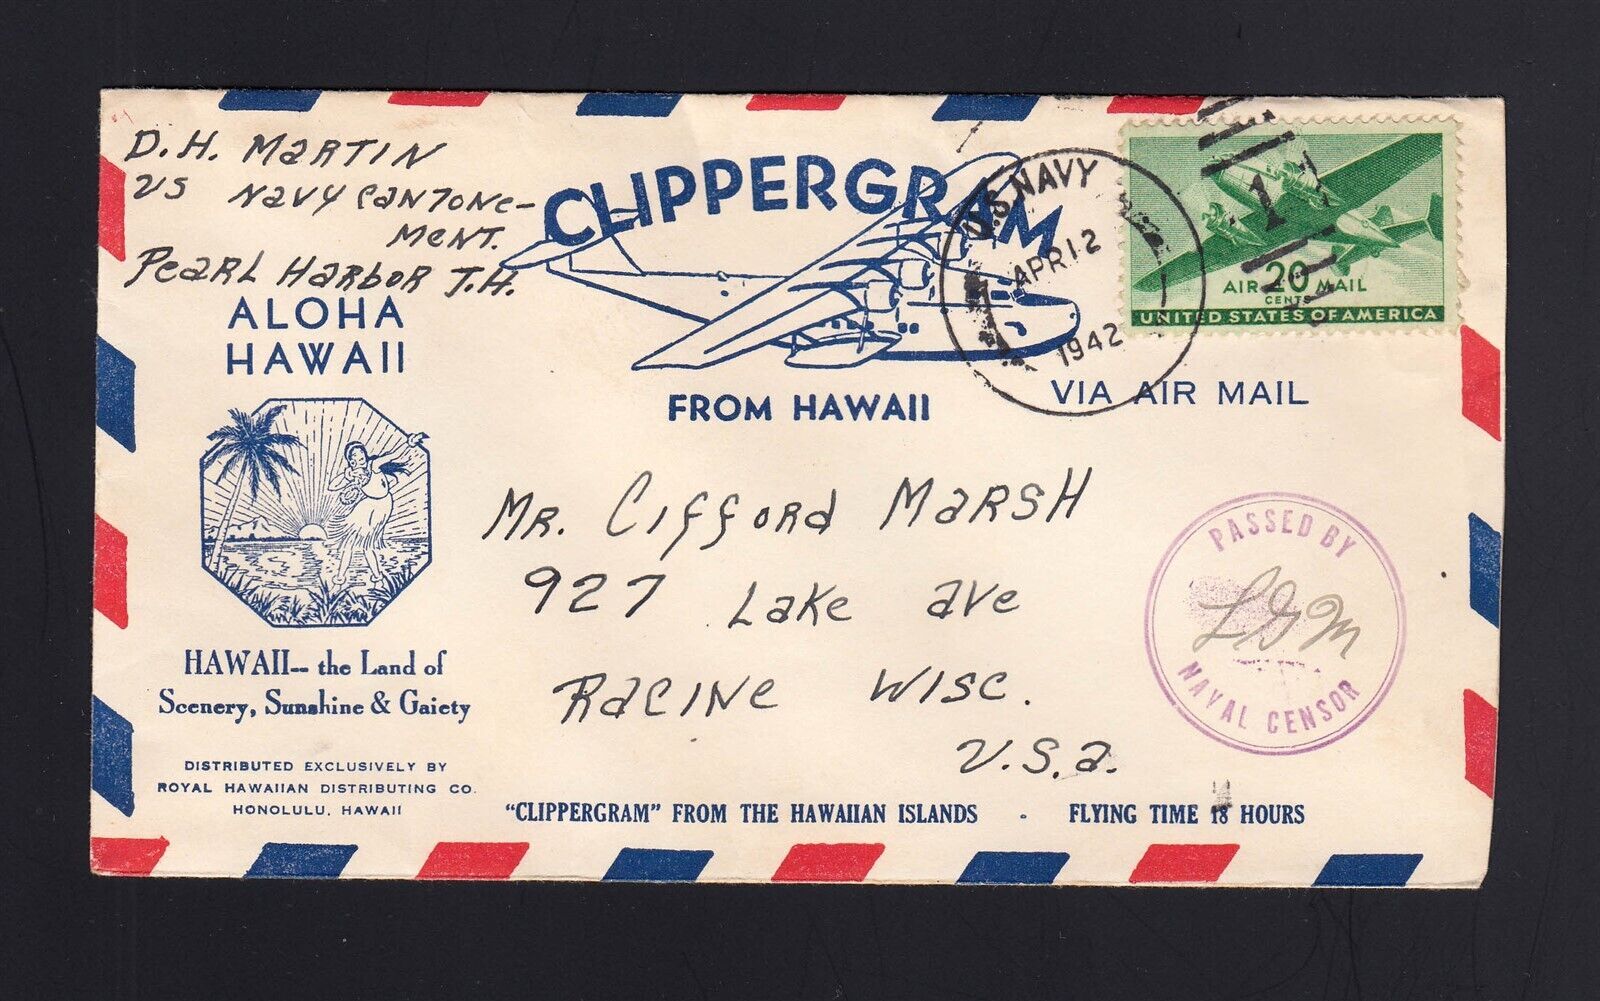 D.H. MARTIN
US NAVY CANTONE-
MENT.
PEARL HARBOR T.H.
CLIPPERGRAM
FROM HAWAII
U.S. NAVY
APR 12
1942
1
20
AIR MAIL
CENTS
UNITED STATES OF AMERICA
VIA AIR MAIL
ALOHA
HAWAII
HAWAII-- the Land of
Scenery, Sunshine & Gaiety
DISTRIBUTED EXCLUSIVELY BY
ROYAL HAWAIIAN DISTRIBUTING CO.
HONOLULU, HAWAII
MR. CIFFORD MARSH
927 LAKE AVE
RACINE WISC.
U.S.A.
PASSED BY
NAVAL CENSOR
"CLIPPERGRAM" FROM THE HAWAIIAN ISLANDS - FLYING TIME 18 HOURS